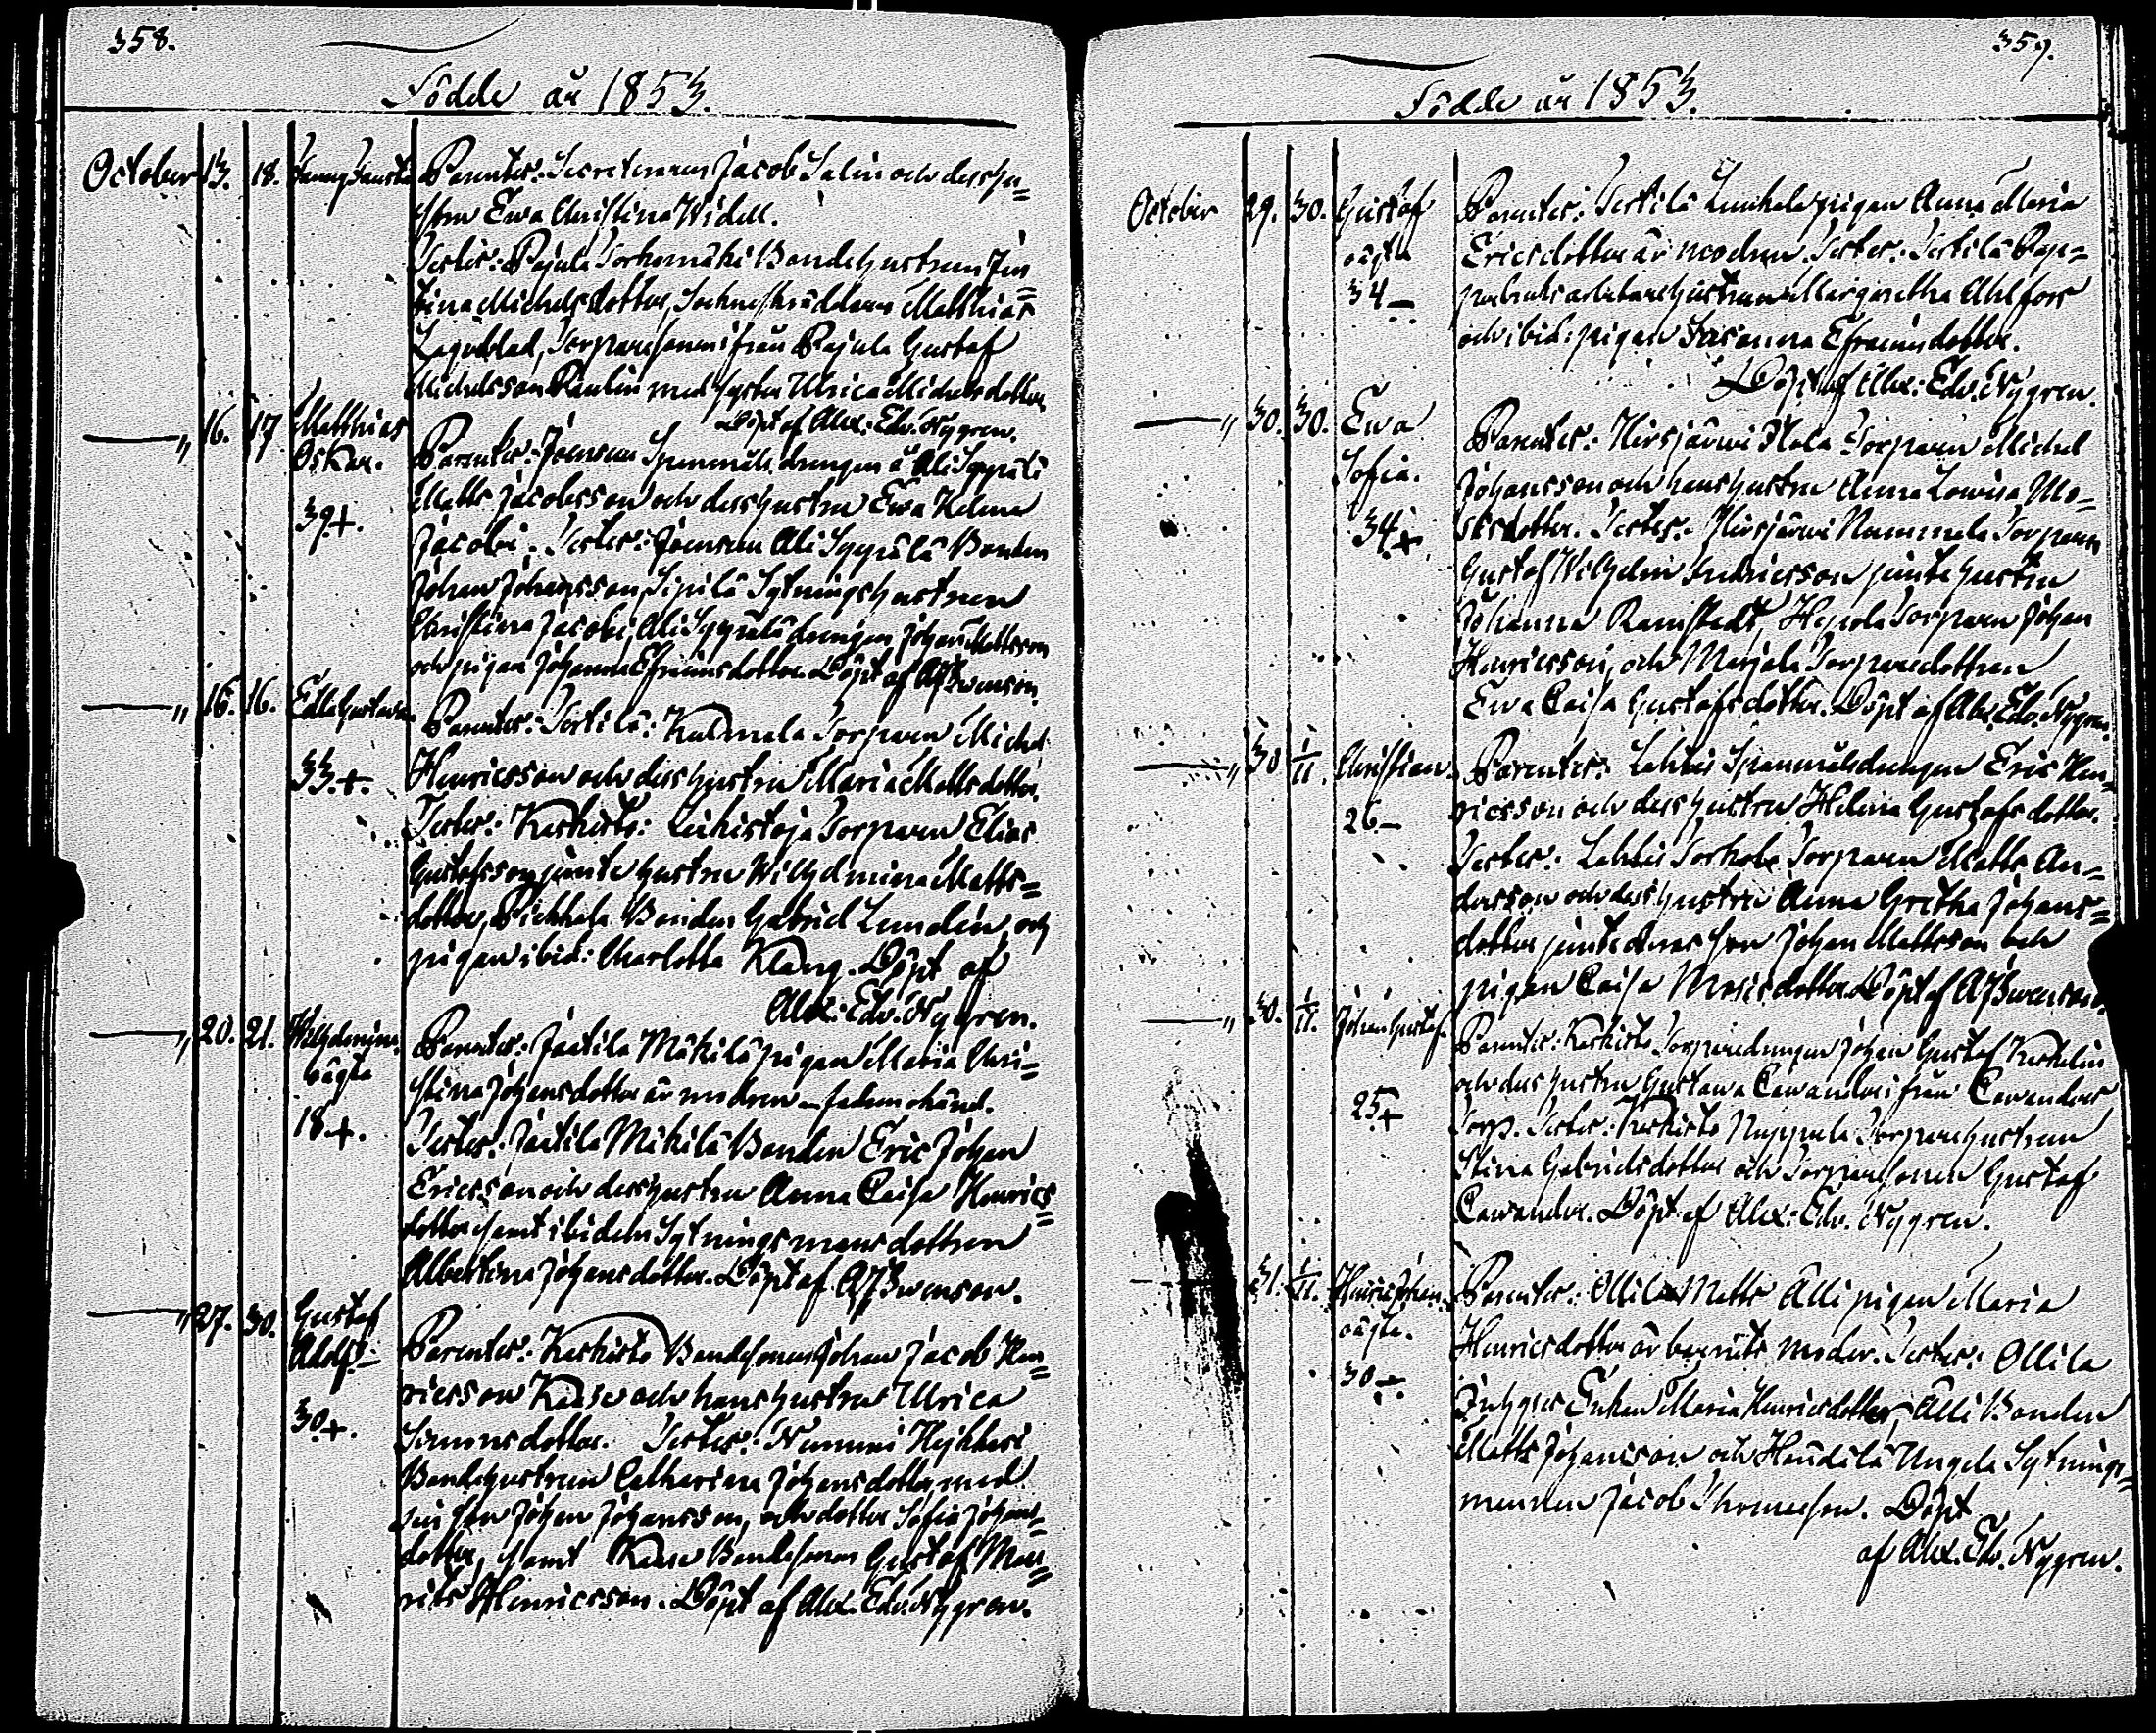 358.
Födde år 1853.
October 13. 18. Fanny Fausta Parenter: Secreteraren Jacob Salin och dess hu=
stru Ewa Christina Widell.
Testes: Pajula Torkomäki Bondehustrun Jus
tina Michelsdotter, Sockneskräddaren Matthias
Lagerblad, Torparesonen ifrån Pajula Gustaf
Michelsson Paulin med syster Ulrica Michelsdotter
Döpt af Alex: Edv. Nygren.
—„ 16. 17 Matthias Oskar. 39+. Parenter: Joensuu Spannmåls drengen å Ali Syppäli
Matts Jacobsson och dess hustru Ewa Helena
Jacobi. Testes: Joensuu Ali Syppälä Bonden
Johan Johansson, Sipilä Sytningshustrun
Christina Jacobi, Ali Syppälä drengen Johan Mattsson
och pigan Johanna Efraimsdotter. Döpt af AJSwenson.
—„ 16. 16. Edla Gustava. 33.+. Parenter: Tortila: Kulmala Torparen Michel
Henricsson och dess hustru Maria Mattsdotter.
Testes: Karkisto: Leikistoja Torparen Elias
Gustafsson jämte hustru Wilhelmina Matts=
dotter, Pichkala Bonden Gabriel Lundén, och
pigan ibid: Charlotta Klang. Döpt af
Alex: Edv. Nygren.
—„ 20. 21. Wilhelmina. oägta 18+. Parenter: Jaatila Mäkilä pigan Maria Chri=
stina Johansdotter är modren – fadern okänd.
Testes: Jaatila Mäkilä Bonden Eric Johan
Ericsson och dess hustru Anna Caisa Henrics=
dotter samt ibidem Sytningsmans dottren
Albertina Johansdotter. Döpt af AJSwenson.
—„ 27. 30. Gustaf Adolf. 30+. Parenter: Karkisto Bondesonen Johan Jacob Hen=
ricsson Kaase och hans hustru Ulrica
Simonsdotter. Testes: Nummi Hejkkeri
Bondehustrun Catharina Johansdotter, med
sin son Johan Johansson, och dotter Sofia Johans=
dotter, samt Kaase Bondesonen Gustaf Mau=
rits Henricsson. Döpt af Alex. Edv. Nygren.
359.
Födde år 1853.
October 29. 30. Gustaf oägta 34– Parenter: Tertilä Lunkala pigan Anna Maria
Ericsdotter är modren. Testes: Tertilä Pap=
persbruks arbetare hustrun Margaretha Ahlfors
och ibid: pigan Susanna Efraimsdotter.
Döpt af Alex: Edv. Nygren.
—„ 30. 30. Ewa Sofia. 34+ Parenter: Hirsjärwi Stola Torparen Michel
Johansson och hans hustru Anna Lowisa Mo=
sesdotter. Testes: Hirsjärwi Nummela Torparen
Gustaf Wilhelm Andersson jämte hustru
Johanna Ramstedt, Hepola Torparen Johan
Henricsson, och Marjala Torparedottren
Ewa Caisa Gustafsdotter. Döpt af Alex. Edv. Nygren.
—„ 30 1/11. Christian. 26.– Parenter: Lahtis Spannmålsdrengen Eric Hen=
ricsson och dess hustru Helena Gustafsdotter.
Testes: Lahtis Torkola Torparen Matts An=
dersson och dess hustru Anna Gretha Johans=
dotter jämte deras son Johan Mattsson och
pigan Caisa Mosisdotter. Döpt af AJSwenson.
—„ 30. 1/11. Johan Gustaf. 25+ Parenter: Karkisto Torparedrengen Johan Gustaf Karkelin
och dess hustru Gustawa Cawander ifrån Cawanders
Torp. Testes: Karkisto Nuppula Torparehustrun
Stina Gabrielsdotter och Torparesonen Gustaf
Cawander. Döpt af Alex: Edv. Nygren.
31. 1/11. Henric Johan. oägta. 30+. Parenter: Ollila Matts Alli pigan Maria
Henricsdotter är barnets moder. Testes: Ollila
Inhyses Enkan Maria Henricsdotter, Alli Bonden
Matts Johansson och Haudila Ungela Sytnings=
mannen Jacob Thomasson. Döpt
af Alex. Edv. Nygren.